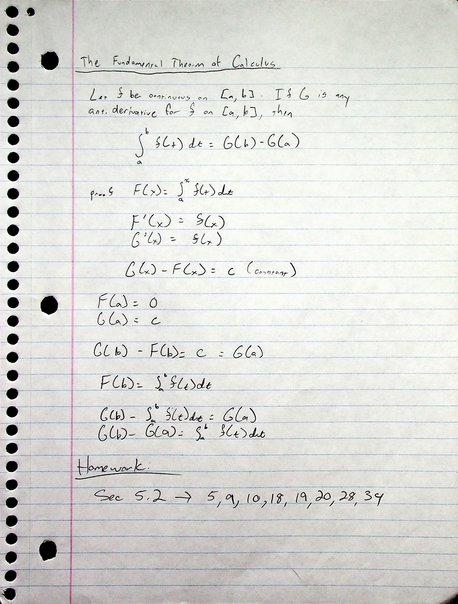 The Fundamental Theorem of Calculus
Let f be continuous on [a, b]. If G is any
antiderivative for f on [a, b], then
∫_a^b f(t) dt = G(b) - G(a)
proof F(x) = ∫_a^x f(t) dt
F'(x) = f(x)
G'(x) = f(x)
G(x) - F(x) = c (constant)
F(a) = 0
G(a) = c
G(b) - F(b) = c = G(a)
F(b) = ∫_a^b f(t) dt
G(b) - ∫_a^b f(t) dt = G(a)
G(b) - G(a) = ∫_a^b f(t) dt
Homework:
Sec 5.2 → 5, 9, 10, 18, 19, 20, 28, 34